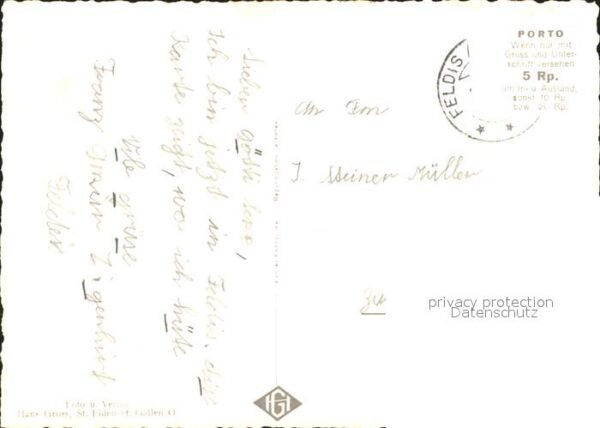 Lieben Götti Sepp,
Ich bin jetzt in Feldis. Die
Karte zeigt, wo ich hüte
Vile grüse
Franz
Feldis
An Fam
J. Steiner Müller
PORTO
Wenn nur mit
Gruss und Unter-
schrift versehen
5 Rp.
im In- u. Ausland,
sonst 10 Rp.
bzw. 20 Rp.
FELDIS
privacy protection
Datenschutz
Foto u. Verlag
Hans Gross, St. Fiden-St. Gallen O
HG